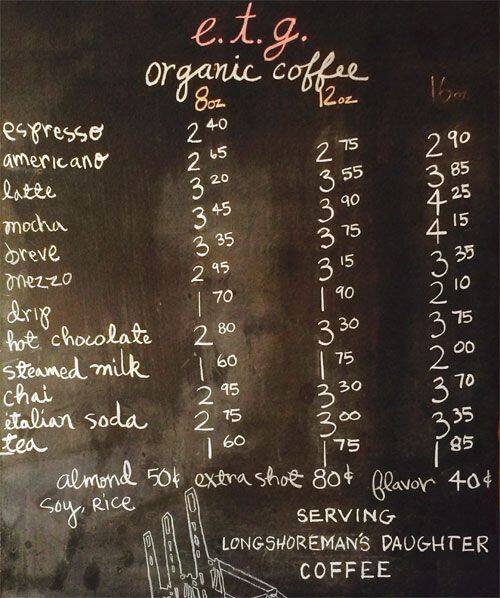 e.t.g.
organic coffee
8oz 12oz 16oz
espresso 2 40
americano 2 65 2 75 2 90
latte 3 20 3 55 3 85
mocha 3 45 3 90 4 25
breve 3 35 3 75 4 15
mezzo 2 95 3 15 3 35
drip 1 70 1 90 2 10
hot chocolate 2 80 3 30 3 75
steamed milk 1 60 1 75 2 00
chai 2 95 3 30 3 70
italian soda 2 75 3 00 3 35
tea 1 60 1 75 1 85
almond 50¢ extra shot 80¢ flavor 40¢
soy, rice
SERVING
LONGSHOREMAN'S DAUGHTER
COFFEE